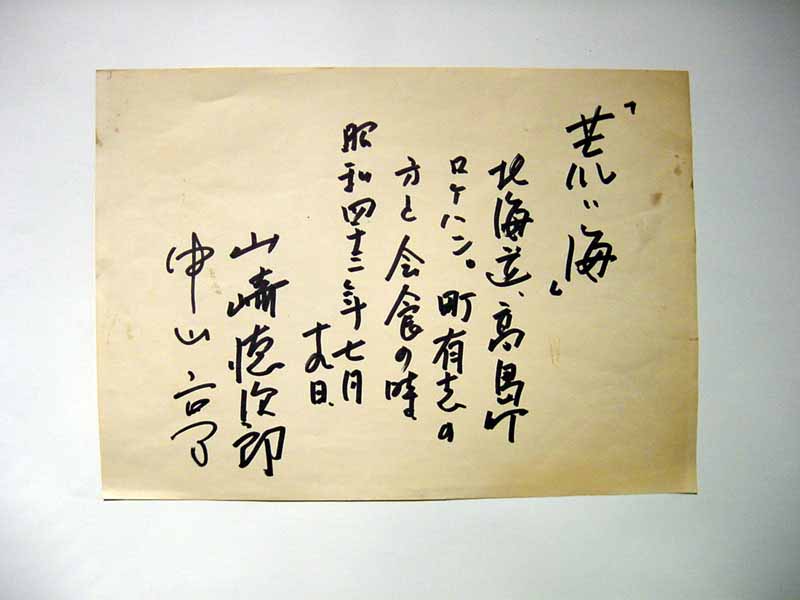 「荒い海」
北海道、高島
ロケハン。町有志の
方と会食の時
昭和四十二年七月
十九日、
山崎徳次郎
中山